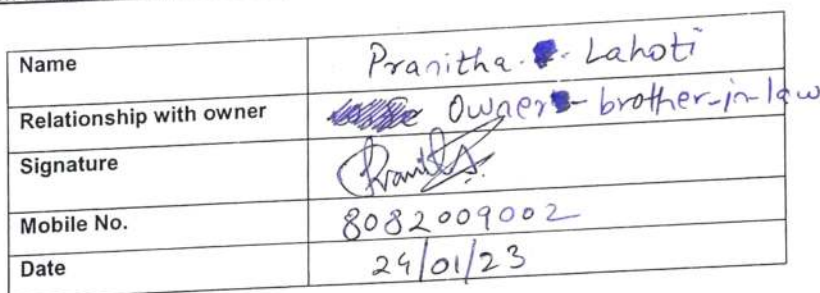 Name Pranitha. . Lahoti
Relationship with owner Owner - brother-in-law
Signature
Mobile No. 8082009002
Date 24/01/23